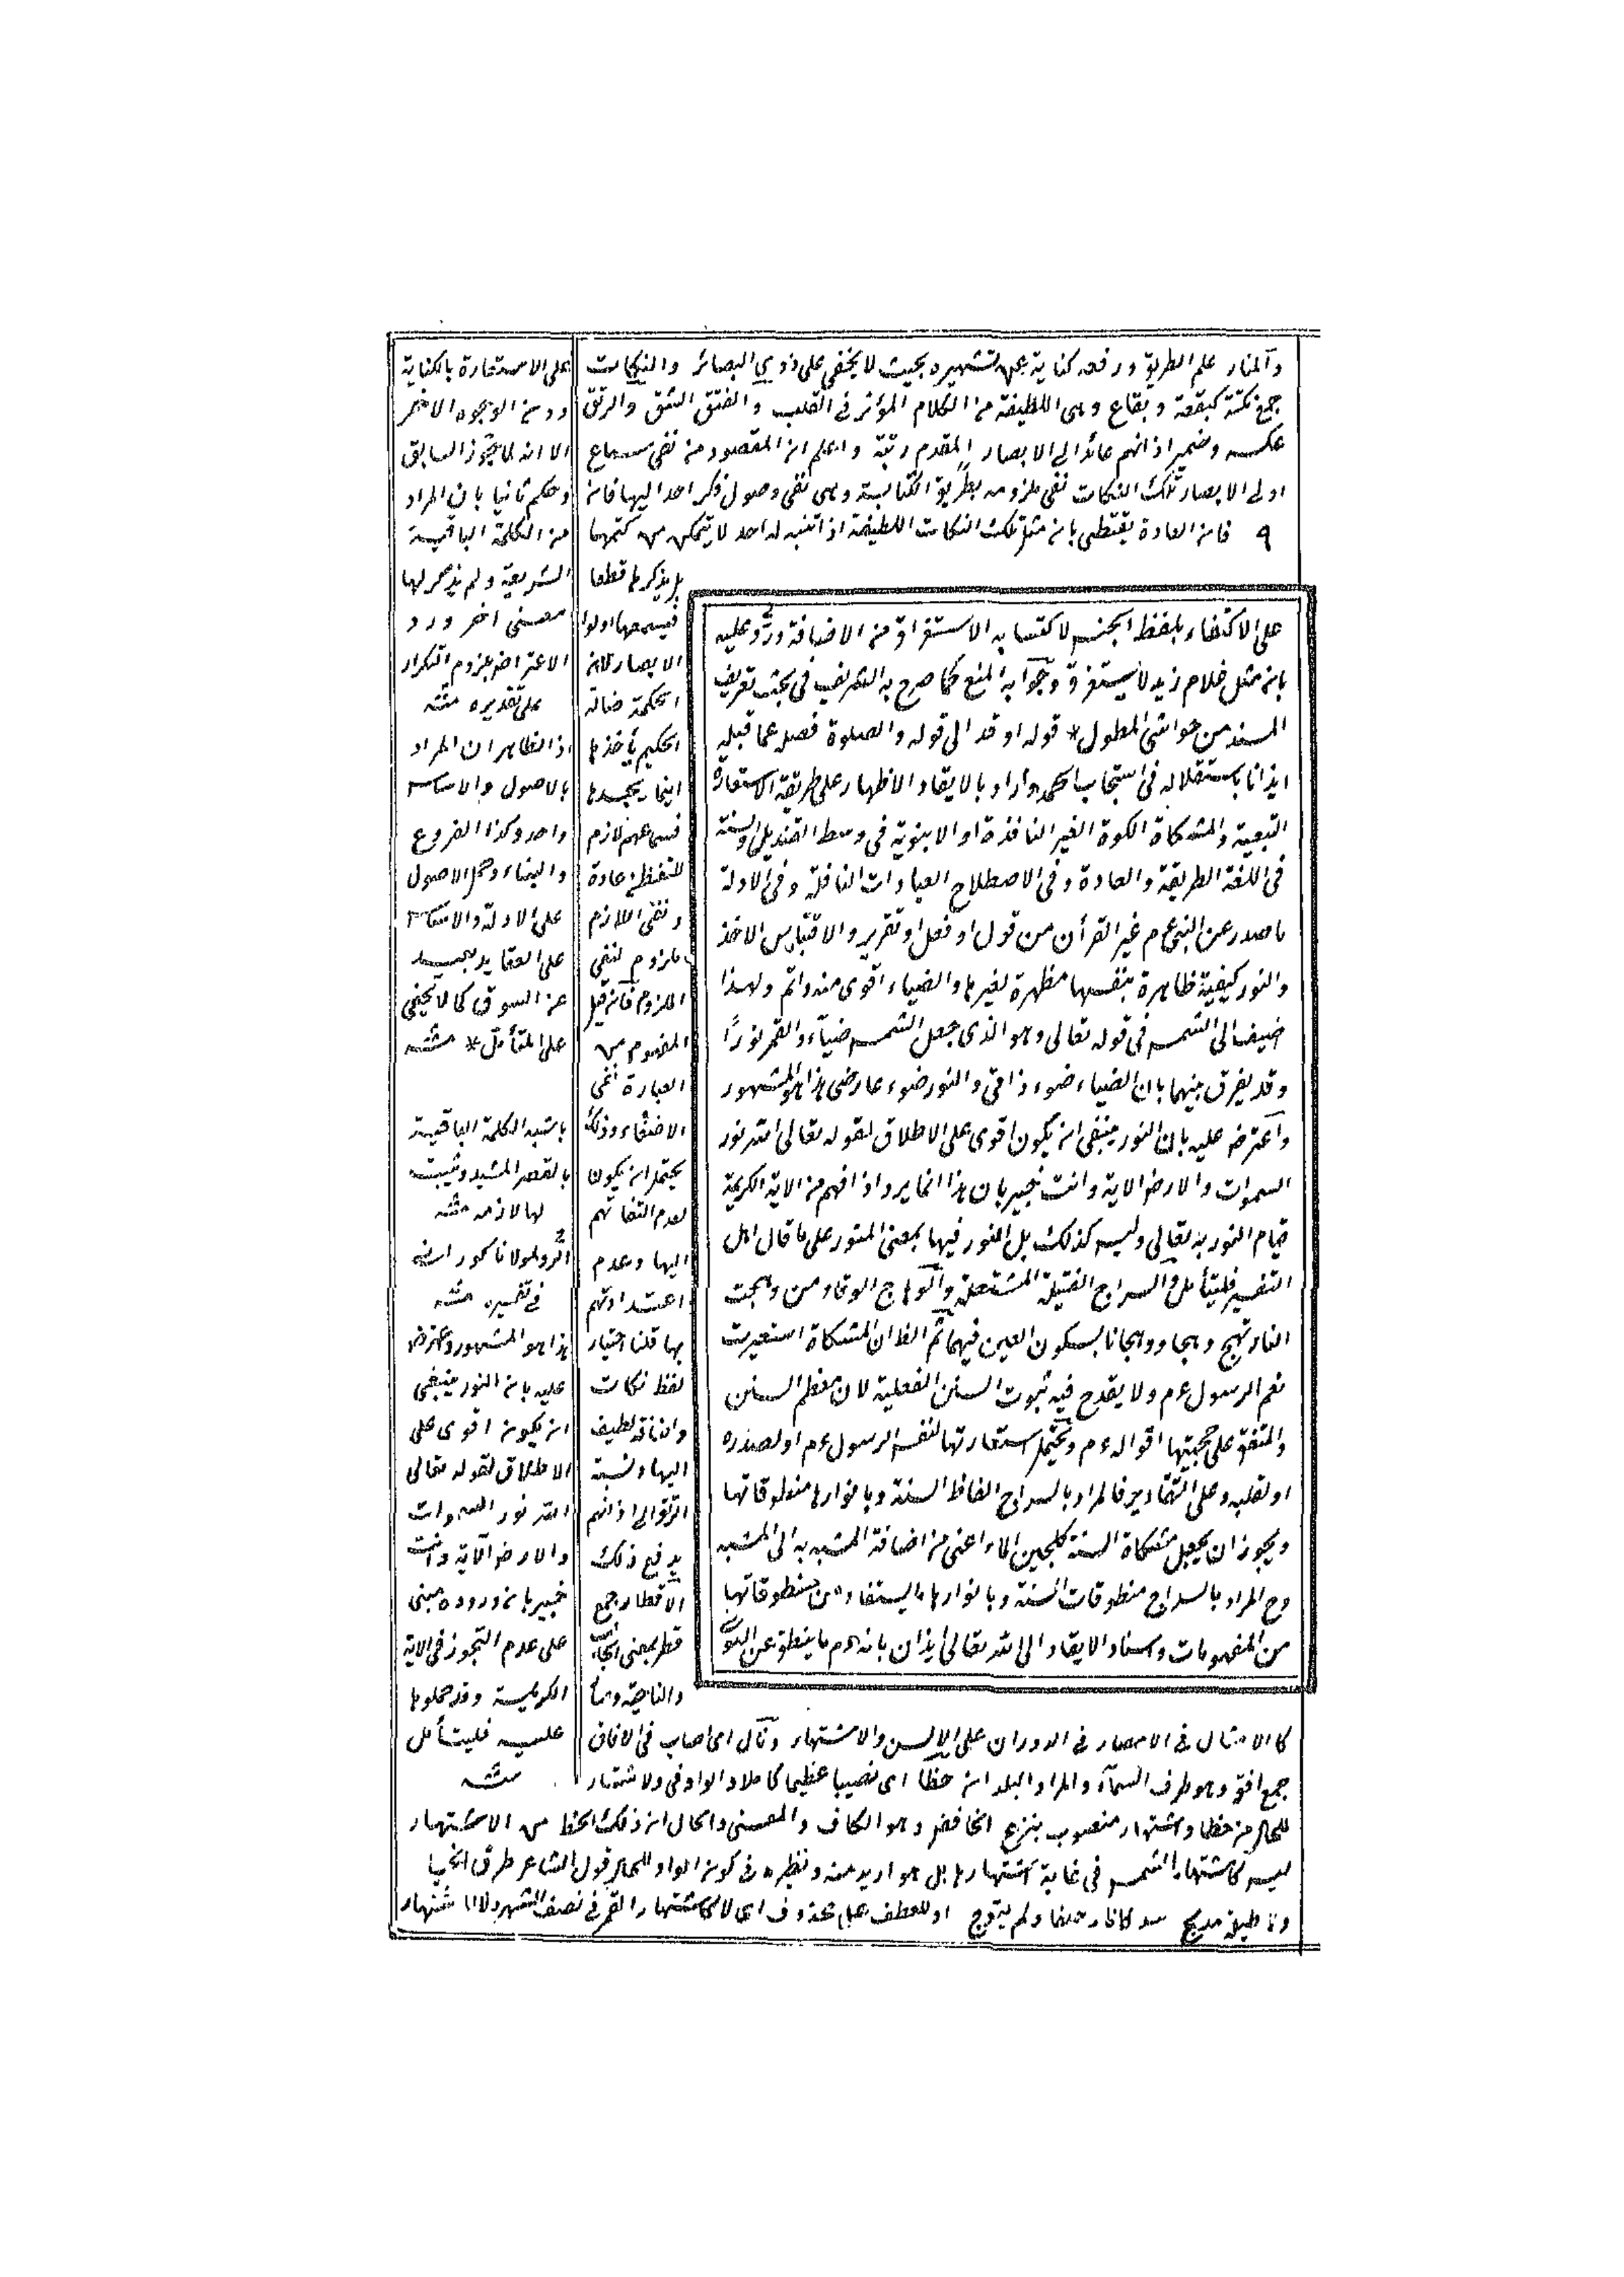 وآلمنار علم الطريق ورفعه كناية عن تشهيره بحيث لا يخفى على ذوي البصائر والنكات
جمع نكتة كبقعة وبقاع وهى اللطيفة من الكلام المؤثر فى القلب والفتق الشق والرتق
عكسه وضمير اذانهم عائد الى الابصار المقدم رتبة واعلم ان المقصود من نفى سماع
اولى الابصار تلك النكات نفى ملزومه بطريق الكناية وهى نفى وصول فكر احد اليها فان
٩ فان العادة يقتطى بان مثل تلك النكات اللطيفة اذا تنبه له احد لا يتمكن من كتمها
بل يذكرها قطعا
فيسمعها اولوا
الابصار لان
الحكمة ضالة
الحكيم يأخذها
اينما يجدها
فسماعهم لازم
للتفطن عادة
ونفى اللازم
ملزوم لنفى
الملزوم فان قيل
المفهوم من
العبارة نفى
الاصغاء وذلك
يحتمل ان يكون
لعدم التفاتهم
اليها وعدم
اعتدادهم
بها قلنا اختيار
لفظ نكات
واضافة لطيف
اليها ونسبة
الرتق الى اذانهم
يدفع ذلك
الاقطار جمع
قطر بمعنى الجانب
والناحية وسار
كالامثال فى الامصار فى الدوران على الالسن والاشتهار ونال اى اصاب فى الافاق
جمع افق وهو طرف السمآء والمراد البلد ان حظا اى نصيبا عظيما كاملا والواو فى ولا اشتهار
للحال من حظا واشتهار منصوب بنزع الخافض وهو الكاف والمعنى والحال ان ذلك الحظ من الاشتهار
ليس كاشتهار الشمس فى غاية اشتهارها بل هو ازيد منه ونظيره فى كون الواو للحال قول الشاعر طرق الخيا
او للعطف على محذوف اى لا كاشتهار القمر فى نصف الشهر ولا اشتهار
على الاكتفاء بلفظ الجنس لاكتسابه الاستغراق من الاضافة ورد عليه
بان مثل غلام زيد لا يستغرق وجوابه المنع كما صرح به الشريف فى بحث تعريف
المسند من حواشى المطول * قوله اوقد الى قوله والصلوة فصله عما قبله
ايذانا باستقلاله فى استجاب الحمد واراد بالايقاد الاظهار على طريقة الاستعارة
التبعية والمشكاة الكوة الغير النافذة او الانبوبة فى وسط القنديل والسنة
فى اللغة الطريقة والعادة وفى الاصطلاح العبادات النافلة وفى الادلة
ما صدر عن النبى عم غير القرأن من قول او فعل او تقرير والاقتباس الاخذ
والنور كيفية ظاهرة بنفسها مظهرة لغيرها والضياء اقوى منه واتم ولهذا
اضيف الى الشمس فى قوله تعالى وهو الذى جعل الشمس ضيآء والقمر نورًا
وقد يفرق بينهما بان الضياء ضوء ذاتى والنور ضوء عارضى هذا هو المشهور
واعترض عليه بان النور ينبغى ان يكون اقوى على الاطلاق لقوله تعالى الله نور
السموات والارض الاية وانت خبير بان هذا انما يرد اذا فهم من الاية الكريمة
قيام النور به تعالى وليس كذلك بل النور فيها بمعنى المنور على ما قال اهل
التفسير فليتأمل والسراج الفتيلة المشتعلة والوهاج الوقاد من وهجت
النار تهج وهجا ووهجانا بسكون العين فيهما ثم الظ ان المشكاة استعيرت
لفم الرسول عم ولا يقدح فيه ثبوت السنن الفعلية لان معظم السنن
والمتفق على حجيتها اقواله عم ويحتمل استعارتها لنفس الرسول عم او لصدره
او لقلبه وعلى التقادير فالمراد بالسراج الفاظ السنة وبانوارها منطوقاتها
ويجوز ان يجعل مشكاة السنة كلجين الماء اعنى من اضافة المشبه به الى المشبه
وح المراد بالسراج منطوقات السنة وبانوارها ما يستفاد من منطوقاتها
من المفهومات واسناد الايقاد الى الله تعالى ايذان بانه عم ما ينطق عن الهوى
على الاستعارة بالكناية
ودون الوجوه الاخر
الا انه لما جوز السابق
وحكم ثانيا بان المراد
من الكلمة الباقية
الشريعة ولم يذكر لها
معنى اخر ورد
الاعتراض بلزوم التكرار
على تقديره منه
اذ الظاهر ان المراد
بالاصول والاساس
واحد وكذا الفروع
والبناء وحمل الاصول
على الادلة والاساس
على العقايد بعيد
عن السوق كما لا يخفى
على المتأمل * منه
باشبه الكلمة الباقية
بالقصر المشيد ويثبت
لها لازمه منه
فى تفسيره منه
هذا هو المشهور واعترض
عليه بان النور ينبغى
ان يكون اقوى على
الاطلاق لقوله تعالى
الله نور السموات
والارض الآية وانت
خبير بان وروده مبنى
على عدم التجوز فى الاية
الكريمة وقد حملوها
عليه فليتأمل
منه